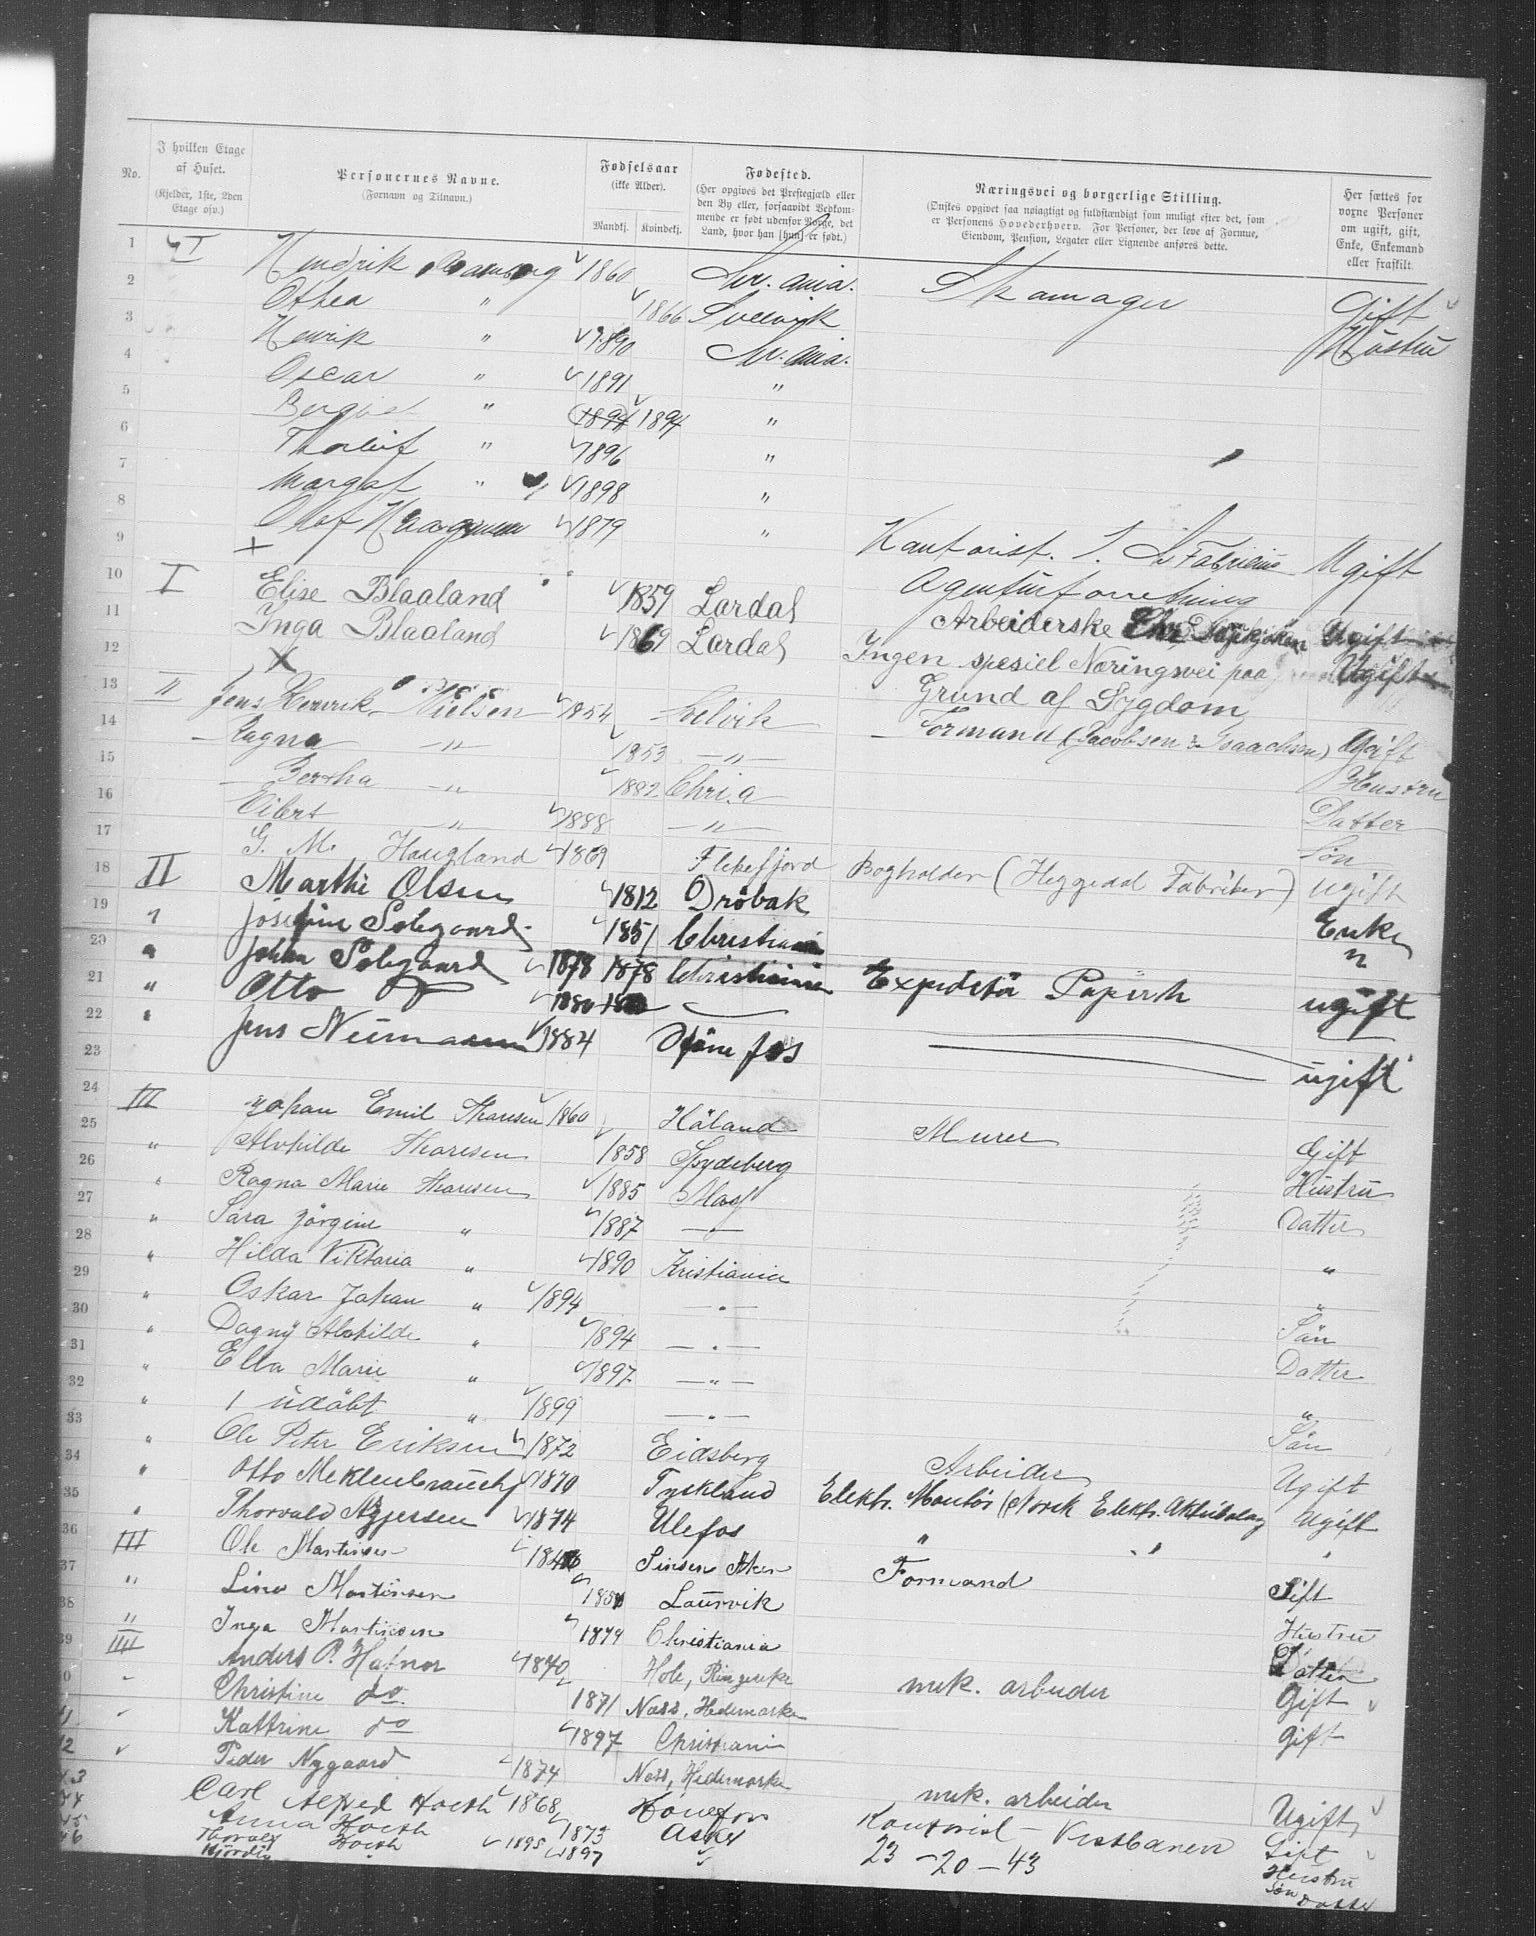 No.
I hvilken Etage af Huset.
(Kjelder, 1ste, 2den Etage osv.)
Personernes Navne.
(Fornavn og Tilnavn.)
Fødselsaar
(ikke Alder).
Mandkj. Kvindekj.
Fødested.
(Her opgives det Prestegjæld eller den By eller, forsaavidt Vedkommende er født udenfor Norge, det Land, hvor han [hun] er født.)
Næringsvei og borgerlige Stilling.
(Ønskes opgivet saa nøiagtigt og fuldstændigt som muligt efter det, som er Personens Hovederhverv. For Personer, der leve af Formue, Eiendom, Pension, Legater eller Lignende anføres dette.
Her sættes for voxne Personer om ugift, gift, Enke, Enkemand eller fraskilt.
1 I Hendrik 1860 Kr. ania. Skomager Gift
2 Othea " 1866 Svelvik Hustru
3 Henrik " 1890 Kr. ania.
4 Oscar " 1891 "
5 " 1894 1894 "
6 Thorleif " 1896 "
7 Margot " 1898 "
8 Olof 1879 " Kontorist. Ugift
9 Agenturforretning
10 I Elise Blaaland 1859 Lardal Arbeiderske Ugift
11 Inga Blaaland 1869 Lardal Ingen spesiel Næringsvei paa Ugift
12 Grund af Sygdom
13 " Jens Henrik Nielsen 1854 Selvik Formand (Jacobsen & Isaachsen) Gift
14 Ragna " 1853 " Hustru
15 Bertha " 1882 Chri.a Datter
16 Eilert " 1888 " Søn
17 G. M. Haugland 1869 Flekefjord Bogholder (Heggedal Fabriker) Ugift
18 II Marthe Olsen 1812 Drøbak Enke
19 " Josefine Solegaard 1851 Christiania "
20 " Johan Solegaard 1878 1878 Christiania Expeditør Papirh ugift
21 " Otto do 1880
22 " Jens Neumann 1884 Hønefos ugift
23
24 III Johan Emil Thoresen 1860 Håland Murer Gift
25 " Alvhilde Thoresen 1858 Spydeberg Hustru
26 " Ragna Marie Thoresen 1885 Mos Datter
27 " Sara Jörgine " 1887 — "
28 " Hilda Viktoria " 1890 Kristiania "
29 " Oskar Johan " 1894 — " — Sön
30 " Dagny Alvhilde " 1894 — " — Datter
31 " Ella Marie " 1897 — " — "
32 " 1 udöbt " 1899 — " — Sön
33 " Ole Peter Eriksen 1872 Eidsberg Arbeider Ugift
34 " Otto 1870 Tyskland Elektr. Montör (Norsk Elektr. Aktiebolag Ugift
35 " Thorvald 1874 Ulefos " " "
36 III Ole Martinsen Sinsen Aker Formand Gift
37 " Lina Martinsen Laurvik Hustru
38 " Inga Martinsen 1879 Christiania Datter
39 IIII Anders P. Hafnor 1870 Hole, Ringerike mek. arbeider Gift
Christine do 1871 Næss, Hedemarken Gift
Kattrine do 1897 Christiania
Peder Nygaard 1874 Næss, Hedemarken mek. arbeider Ugift
Carl Alfred Hoeth 1868 Hönefos Kontorist – Vestbanen Gift
Anna Hoeth 1873 Asker 23 – 20 – 43 Hustru
Thorolf Hoeth 1895 " Søn
Hjördis 1897 Datter